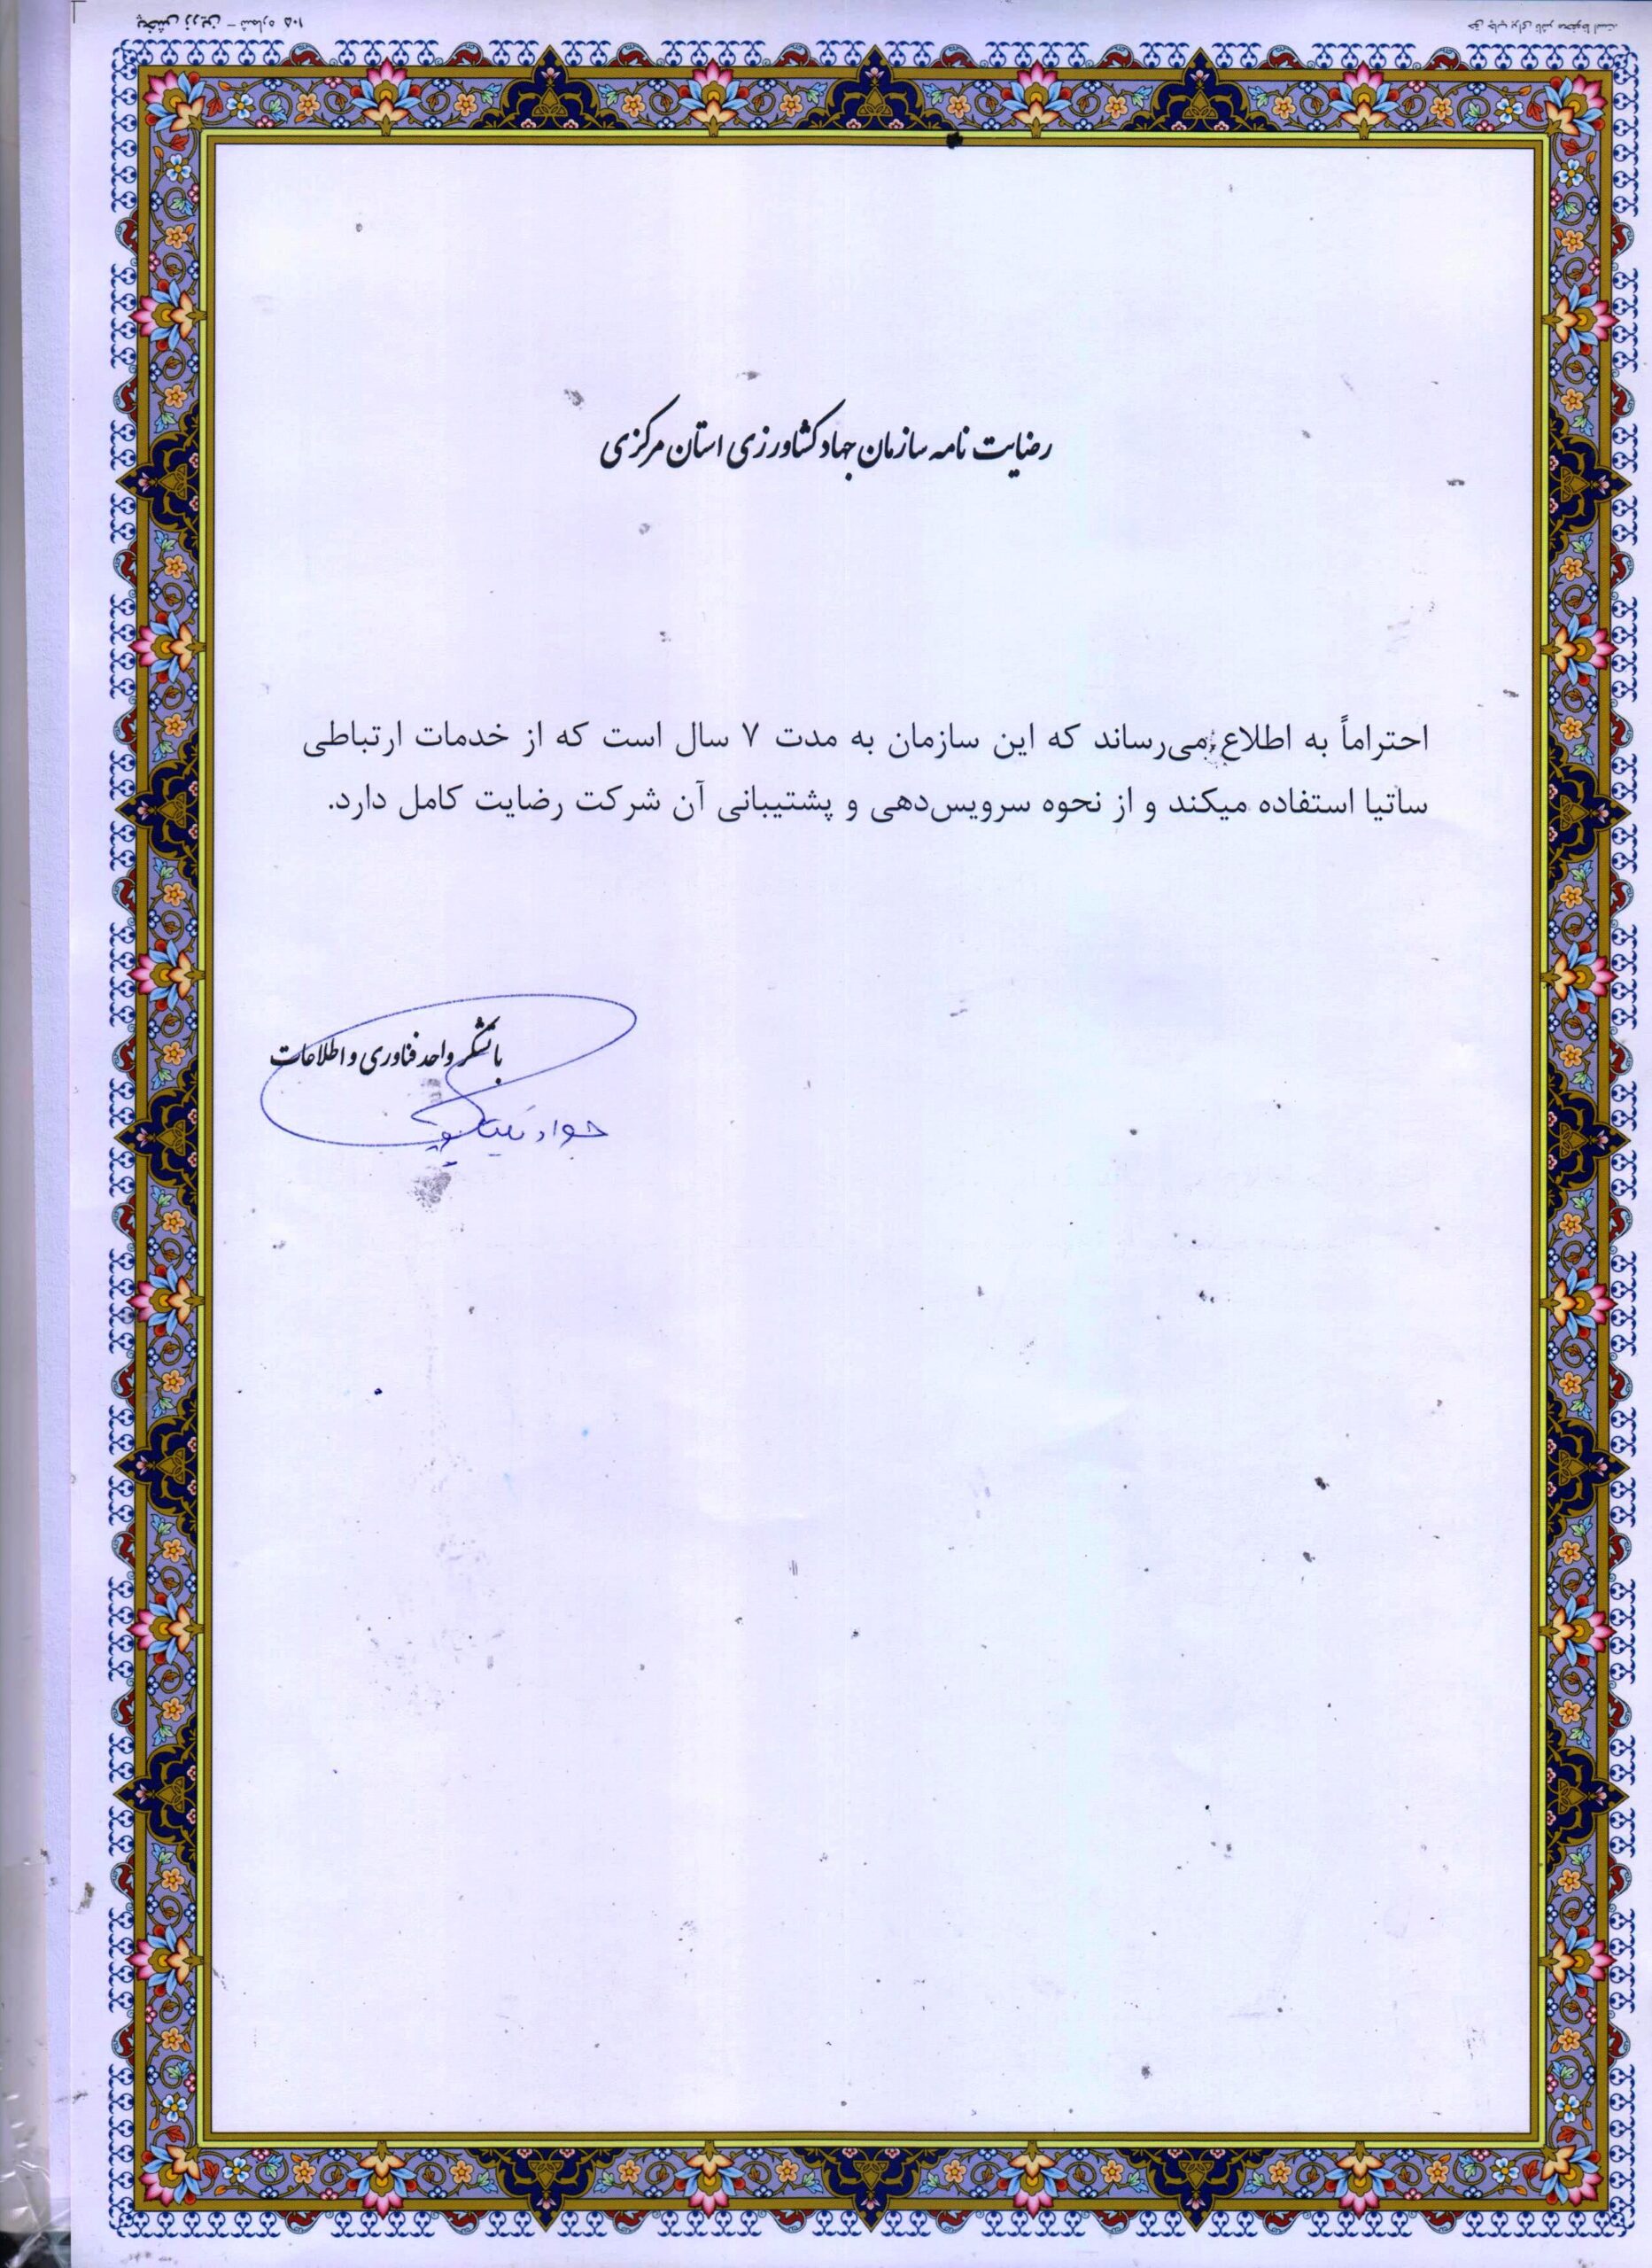 رضایت نامه سازمان جهاد کشاورزی استان مرکزی
احتراماً به اطلاع می‌رساند که این سازمان به مدت ۷ سال است که از خدمات ارتباطی
ساتیا استفاده میکند و از نحوه سرویس‌دهی و پشتیبانی آن شرکت رضایت کامل دارد.
با تشکر واحد فناوری و اطلاعات
جواد
پخش زرین - شماره ۱۰۵
حق چاپ برای ناشر محفوظ است